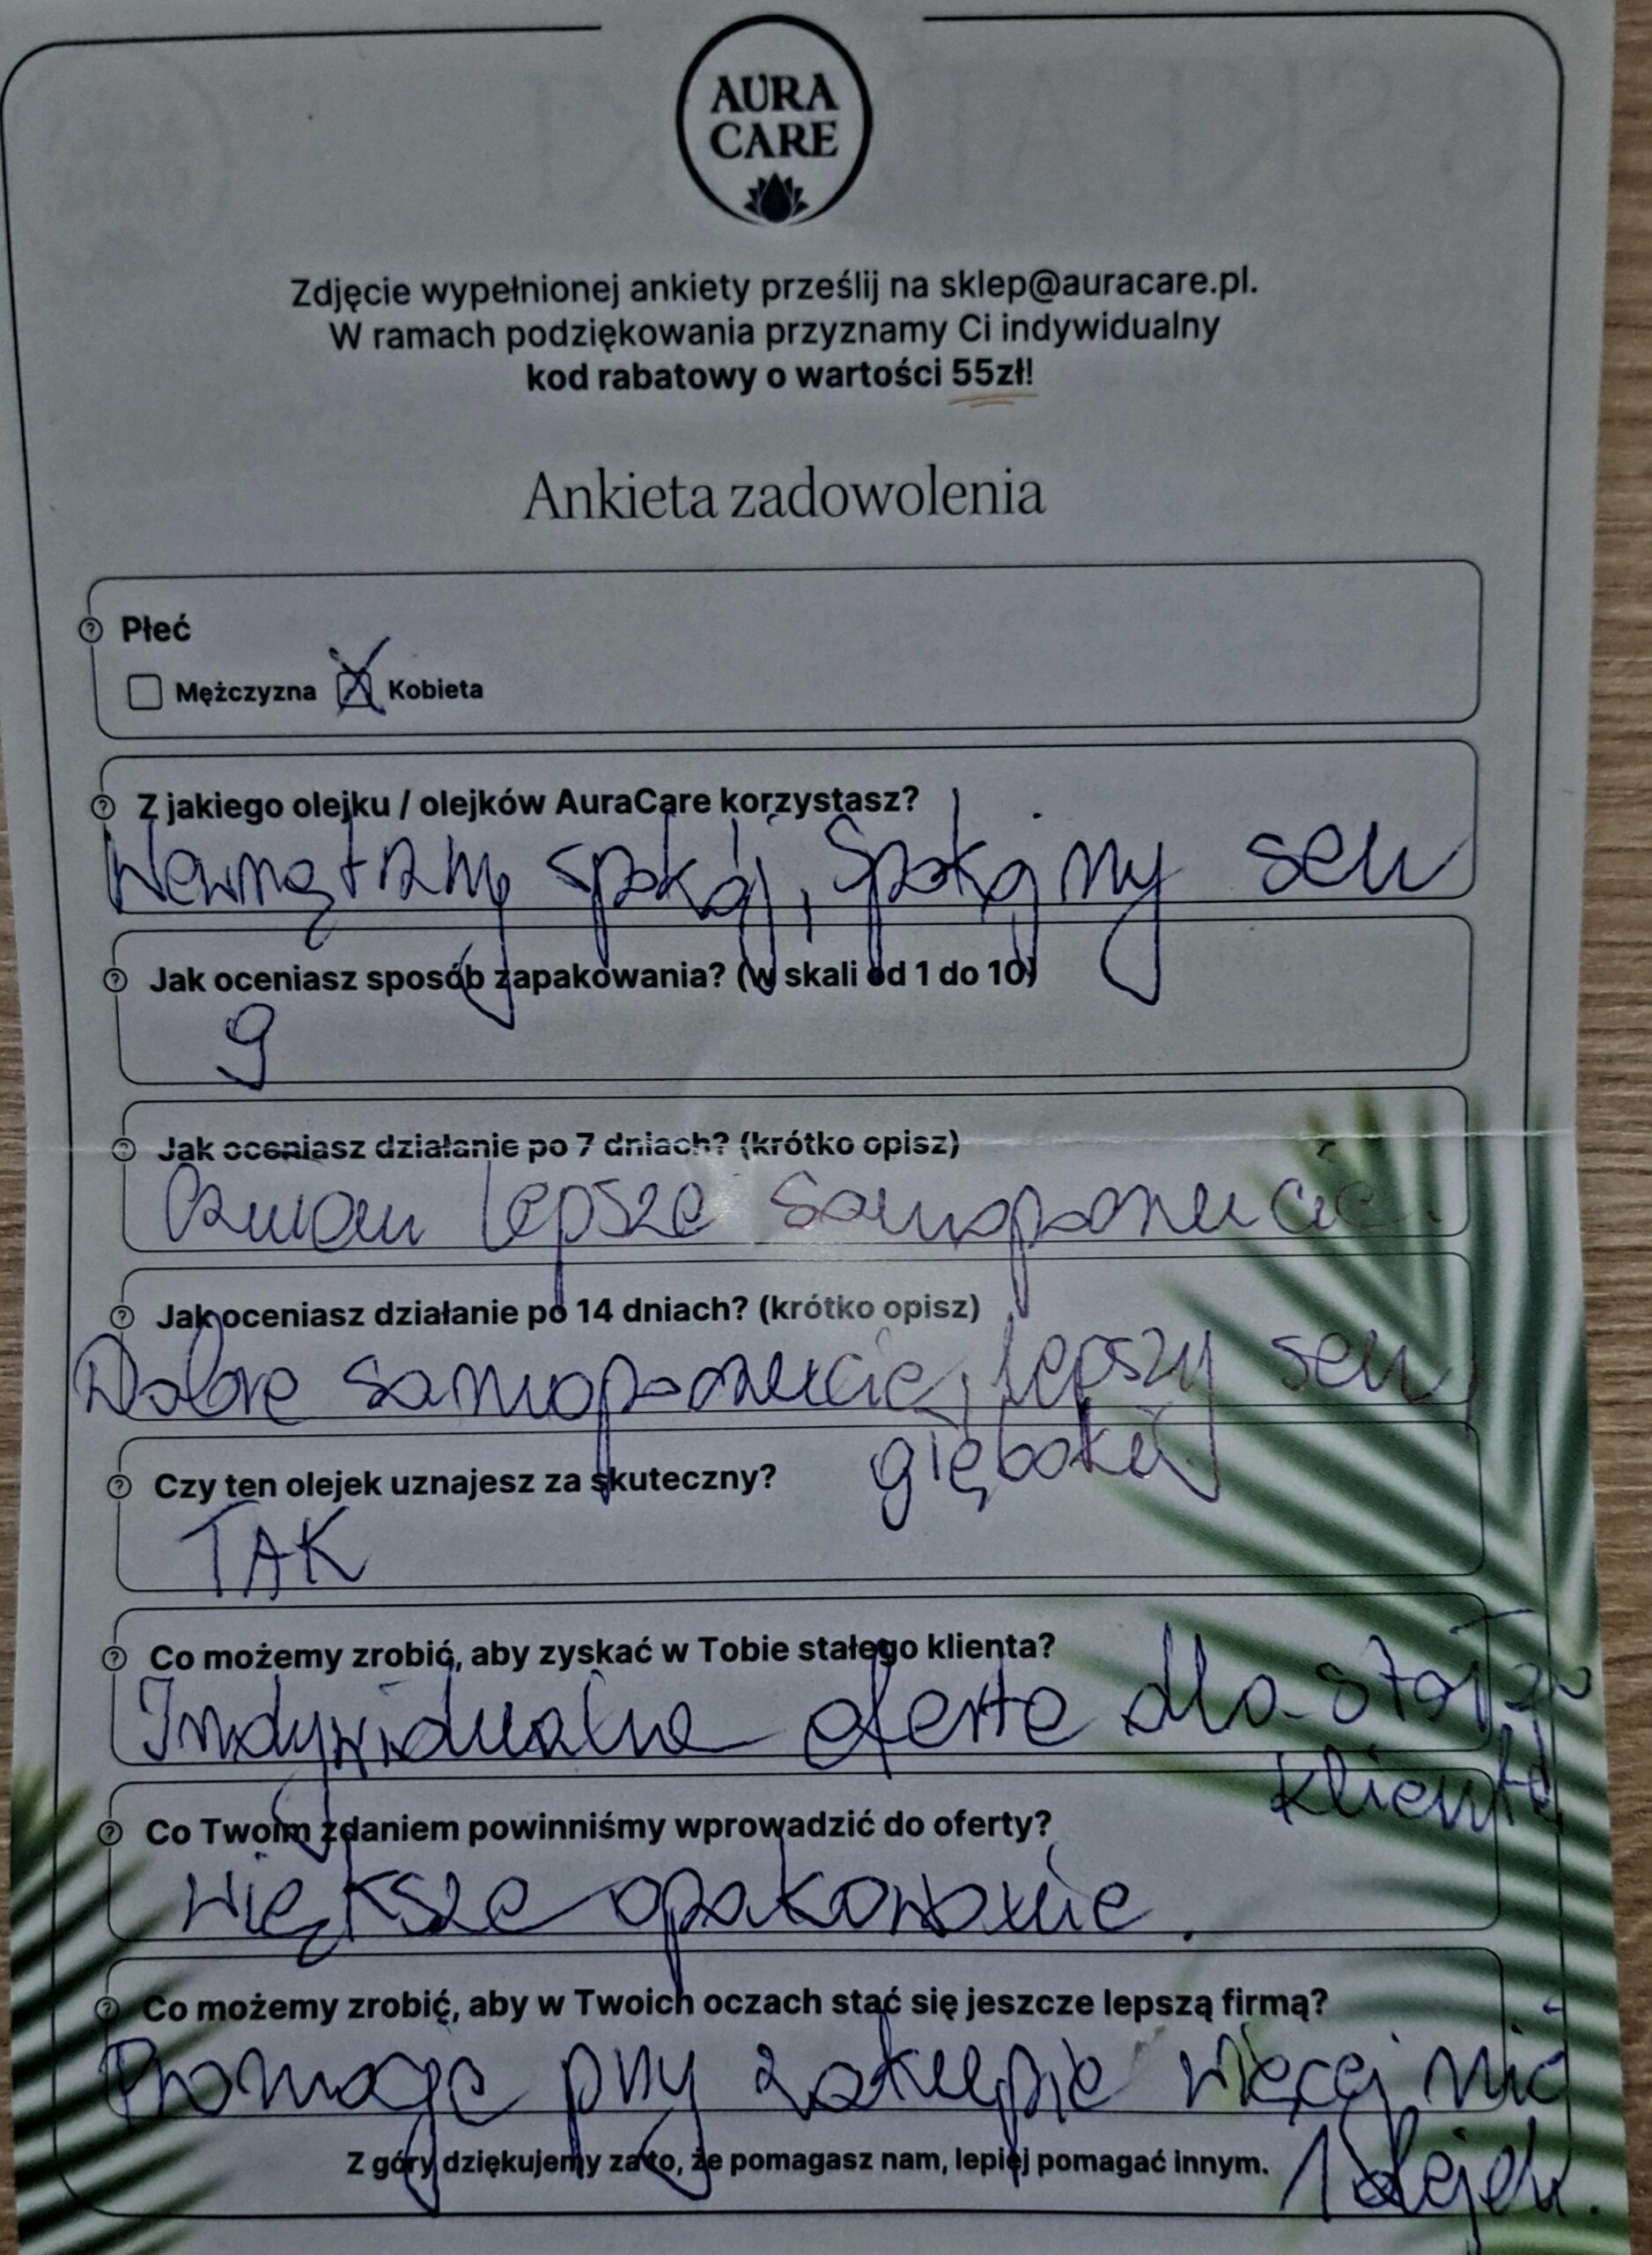 AURA
CARE
Zdjęcie wypełnionej ankiety prześlij na sklep@auracare.pl.
W ramach podziękowania przyznamy Ci indywidualny
kod rabatowy o wartości 55zł!
Ankieta zadowolenia
Płeć
Mężczyzna X Kobieta
Z jakiego olejku / olejków AuraCare korzystasz?
Wewnętrzny spokój, Spokojny sen
Jak oceniasz sposób zapakowania? (w skali od 1 do 10)
9
Jak oceniasz działanie po 7 dniach? (krótko opisz)
lepsze samopoczucie.
Jak oceniasz działanie po 14 dniach? (krótko opisz)
Dobre samopoczucie, lepszy sen,
Czy ten olejek uznajesz za skuteczny?
TAK
Co możemy zrobić, aby zyskać w Tobie stałego klienta?
Indywidualne oferte dla
klienta
Co Twoim zdaniem powinniśmy wprowadzić do oferty?
większe opakowanie.
Co możemy zrobić, aby w Twoich oczach stać się jeszcze lepszą firmą?
Promocje przy zakupie więcej niż
1 olejek.
Z góry dziękujemy za to, że pomagasz nam, lepiej pomagać innym.